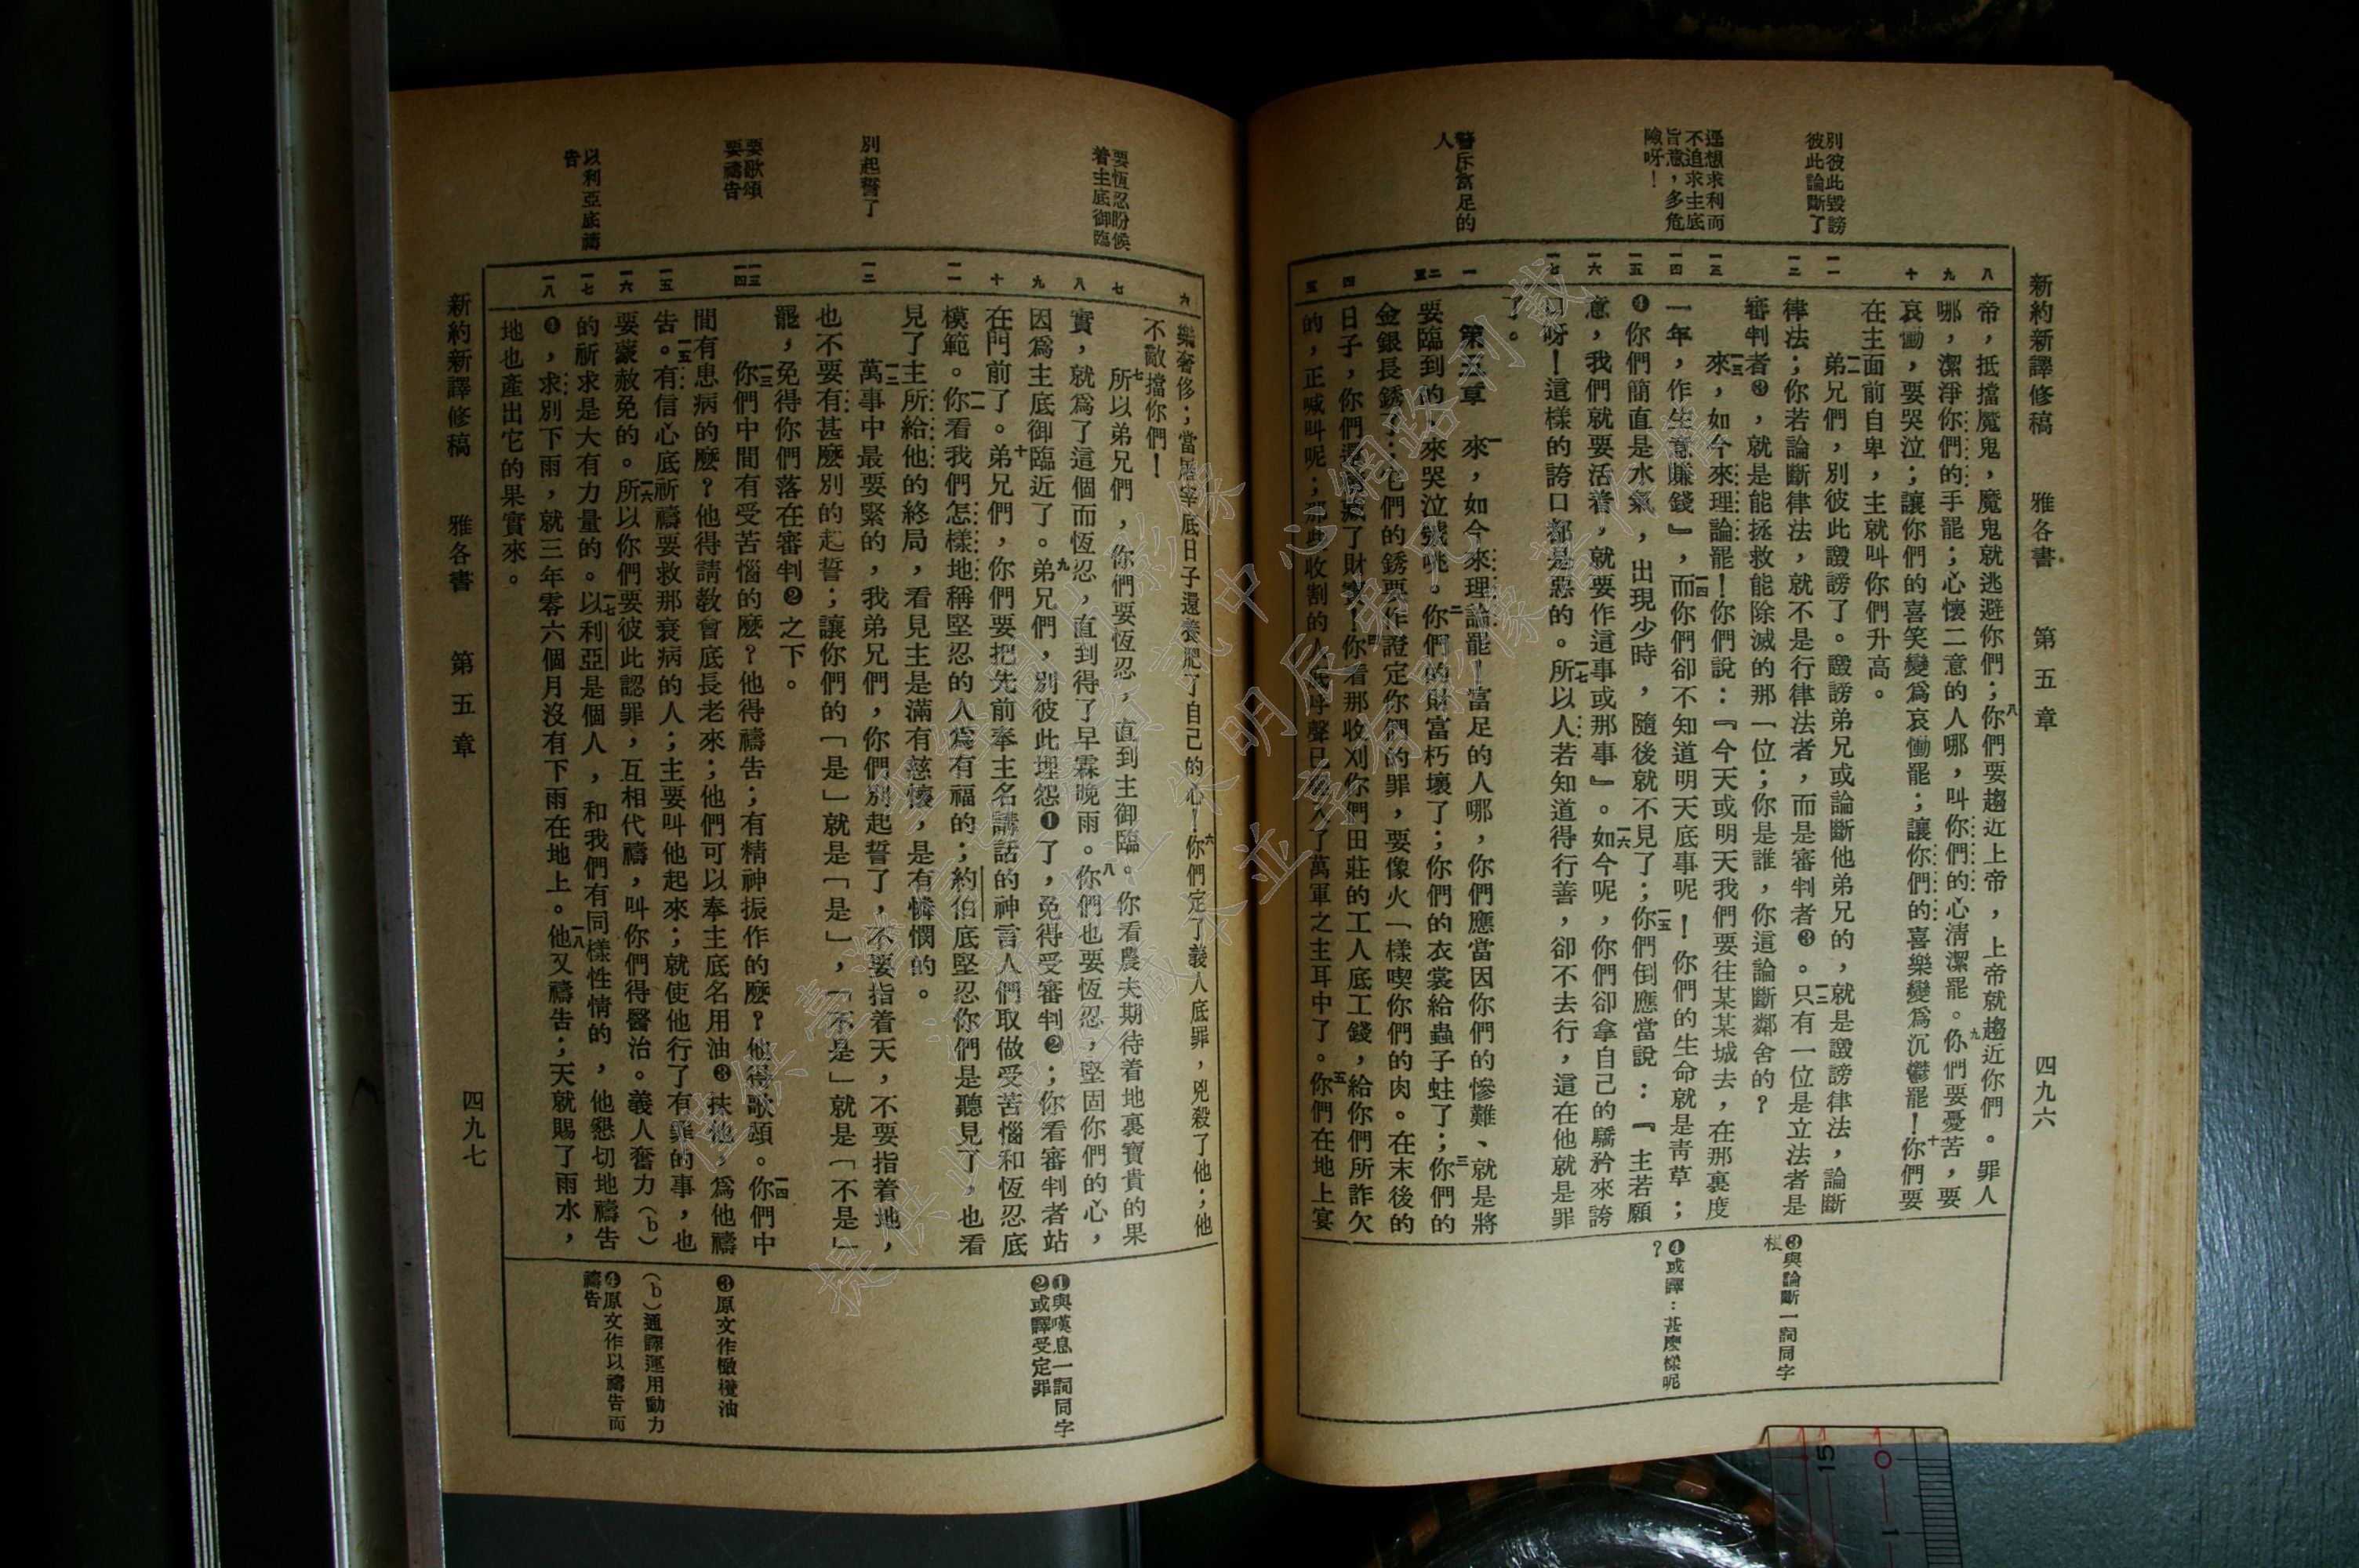 新約新譯修稿 雅各書 第五章 四九六
別彼此毀謗
彼此論斷了
逕想求利而
不追求主底
旨意，多危
險呀！
警斥富足的
人
八
九
十
一一
一二
一三
一四
一五
一六
一七
一
二至
四
五
帝，抵擋魔鬼，魔鬼就逃避你們；八你們要趨近上帝，上帝就趨近你們。罪人
哪，潔淨你們的手罷；心懷二意的人哪，叫你們的心清潔罷。九你們要憂苦，要
哀慟，要哭泣；讓你們的喜笑變爲哀慟罷；讓你們的喜樂變爲沉鬱罷！十你們要
在主面前自卑，主就叫你們升高。
一一弟兄們，別彼此譭謗了。譭謗弟兄或論斷他弟兄的，就是譭謗律法，論斷
律法；你若論斷律法，就不是行律法者，而是審判者❸。一二只有一位是立法者是
審判者❸，就是能拯救能除滅的那一位；你是誰，你這論斷鄰舍的？
一三來，如今來理論罷！你們說：『今天或明天我們要往某某城去，在那裏度
一年，作生意賺錢』，一四而你們卻不知道明天底事呢！你們的生命就是青草；
❹你們簡直是水氣，出現少時，隨後就不見了；一五你們倒應當說：『主若願
意，我們就要活着，就要作這事或那事』。一六如今呢，你們卻拿自己的驕矜來誇
口呀！這樣的誇口都是惡的。一七所以人若知道得行善，卻不去行，這在他就是罪
了。
第五章 一來，如今來理論罷！富足的人哪，你們應當因你們的慘難、就是將
要臨到的，來哭泣號咷。二你們的財富朽壞了；你們的衣裳給蟲子蛀了；三你們的
金銀長銹了；它們的銹要作證定你們的罪，要像火一樣喫你們的肉。在末後的
日子，你們還積藏了財寶！四你看那收刈你們田莊的工人底工錢，給你們所詐欠
的，正喊叫呢；那些收割的人底呼聲已經入了萬軍之主耳中了。五你們在地上宴
❸與論斷一詞同字
根
❹或譯：甚麼樣呢
？
要恆忍盼候
着主底御臨
別起誓了
要歌頌
要禱告
以利亞底禱
告
六
七
八
九
十
一一
一二
一三
一四
一五
一六
一七
一八
樂奢侈；當屠宰底日子還養肥了自己的心！六你們定了義人底罪，兇殺了他；他
不敵擋你們！
七所以弟兄們，你們要恆忍，直到主御臨。你看農夫期待着地裏寶貴的果
實，就爲了這個而恆忍，直到得了早霖晚雨。八你們也要恆忍，堅固你們的心，
因爲主底御臨近了。九弟兄們，別彼此埋怨❶了，免得受審判❷；你看審判者站
在門前了。十弟兄們，你們要把先前奉主名講話的神言人們取做受苦惱和恆忍底
模範。一一你看我們怎樣地稱堅忍的人爲有福的；約伯底堅忍你們是聽見了，也看
見了主所給他的終局，看見主是滿有慈懷，是有憐憫的。
一二萬事中最要緊的，我弟兄們，你們別起誓了，不要指着天，不要指着地，
也不要有甚麼別的起誓；讓你們的「是」就是「是」，「不是」就是「不是」
罷，免得你們落在審判❷之下。
一三你們中間有受苦惱的麼？他得禱告；有精神振作的麼？他得歌頌。一四你們中
間有患病的麼？他得請教會底長老來；他們可以奉主底名用油❸抹他，爲他禱
告。一五有信心底祈禱要救那衰病的人；主要叫他起來；就使他行了有罪的事，也
要蒙赦免的。一六所以你們要彼此認罪，互相代禱，叫你們得醫治。義人奮力（b）
的祈求是大有力量的。一七以利亞是個人，和我們有同樣性情的，他懇切地禱告
❹，求別下雨，就三年零六個月沒有下雨在地上。一八他又禱告；天就賜了雨水，
地也產出它的果實來。
❶與嘆息一詞同字
❷或譯受定罪
❸原文作橄欖油
（b）通譯運用動力
❹原文作以禱告而
禱告
新約新譯修稿 雅各書 第五章 四九七